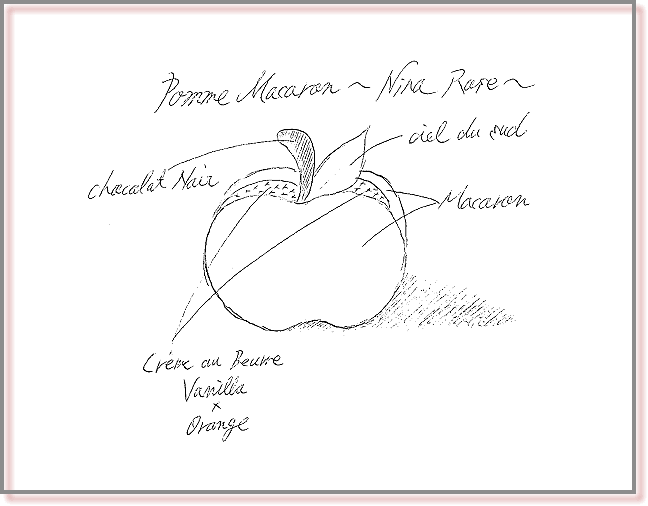 Pomme Macaron ~ Nina Rose ~
ciel du sud
chocolat Noir
Macaron
Crème au Beurre
Vanilla
×
Orange